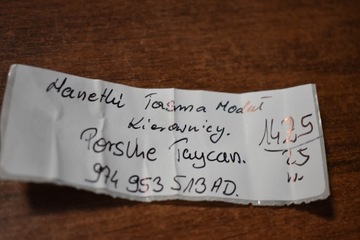 Manetki Taśma Moduł
Kierownicy.
Porsche Taycan.
974 953 513 AD.
1425
25